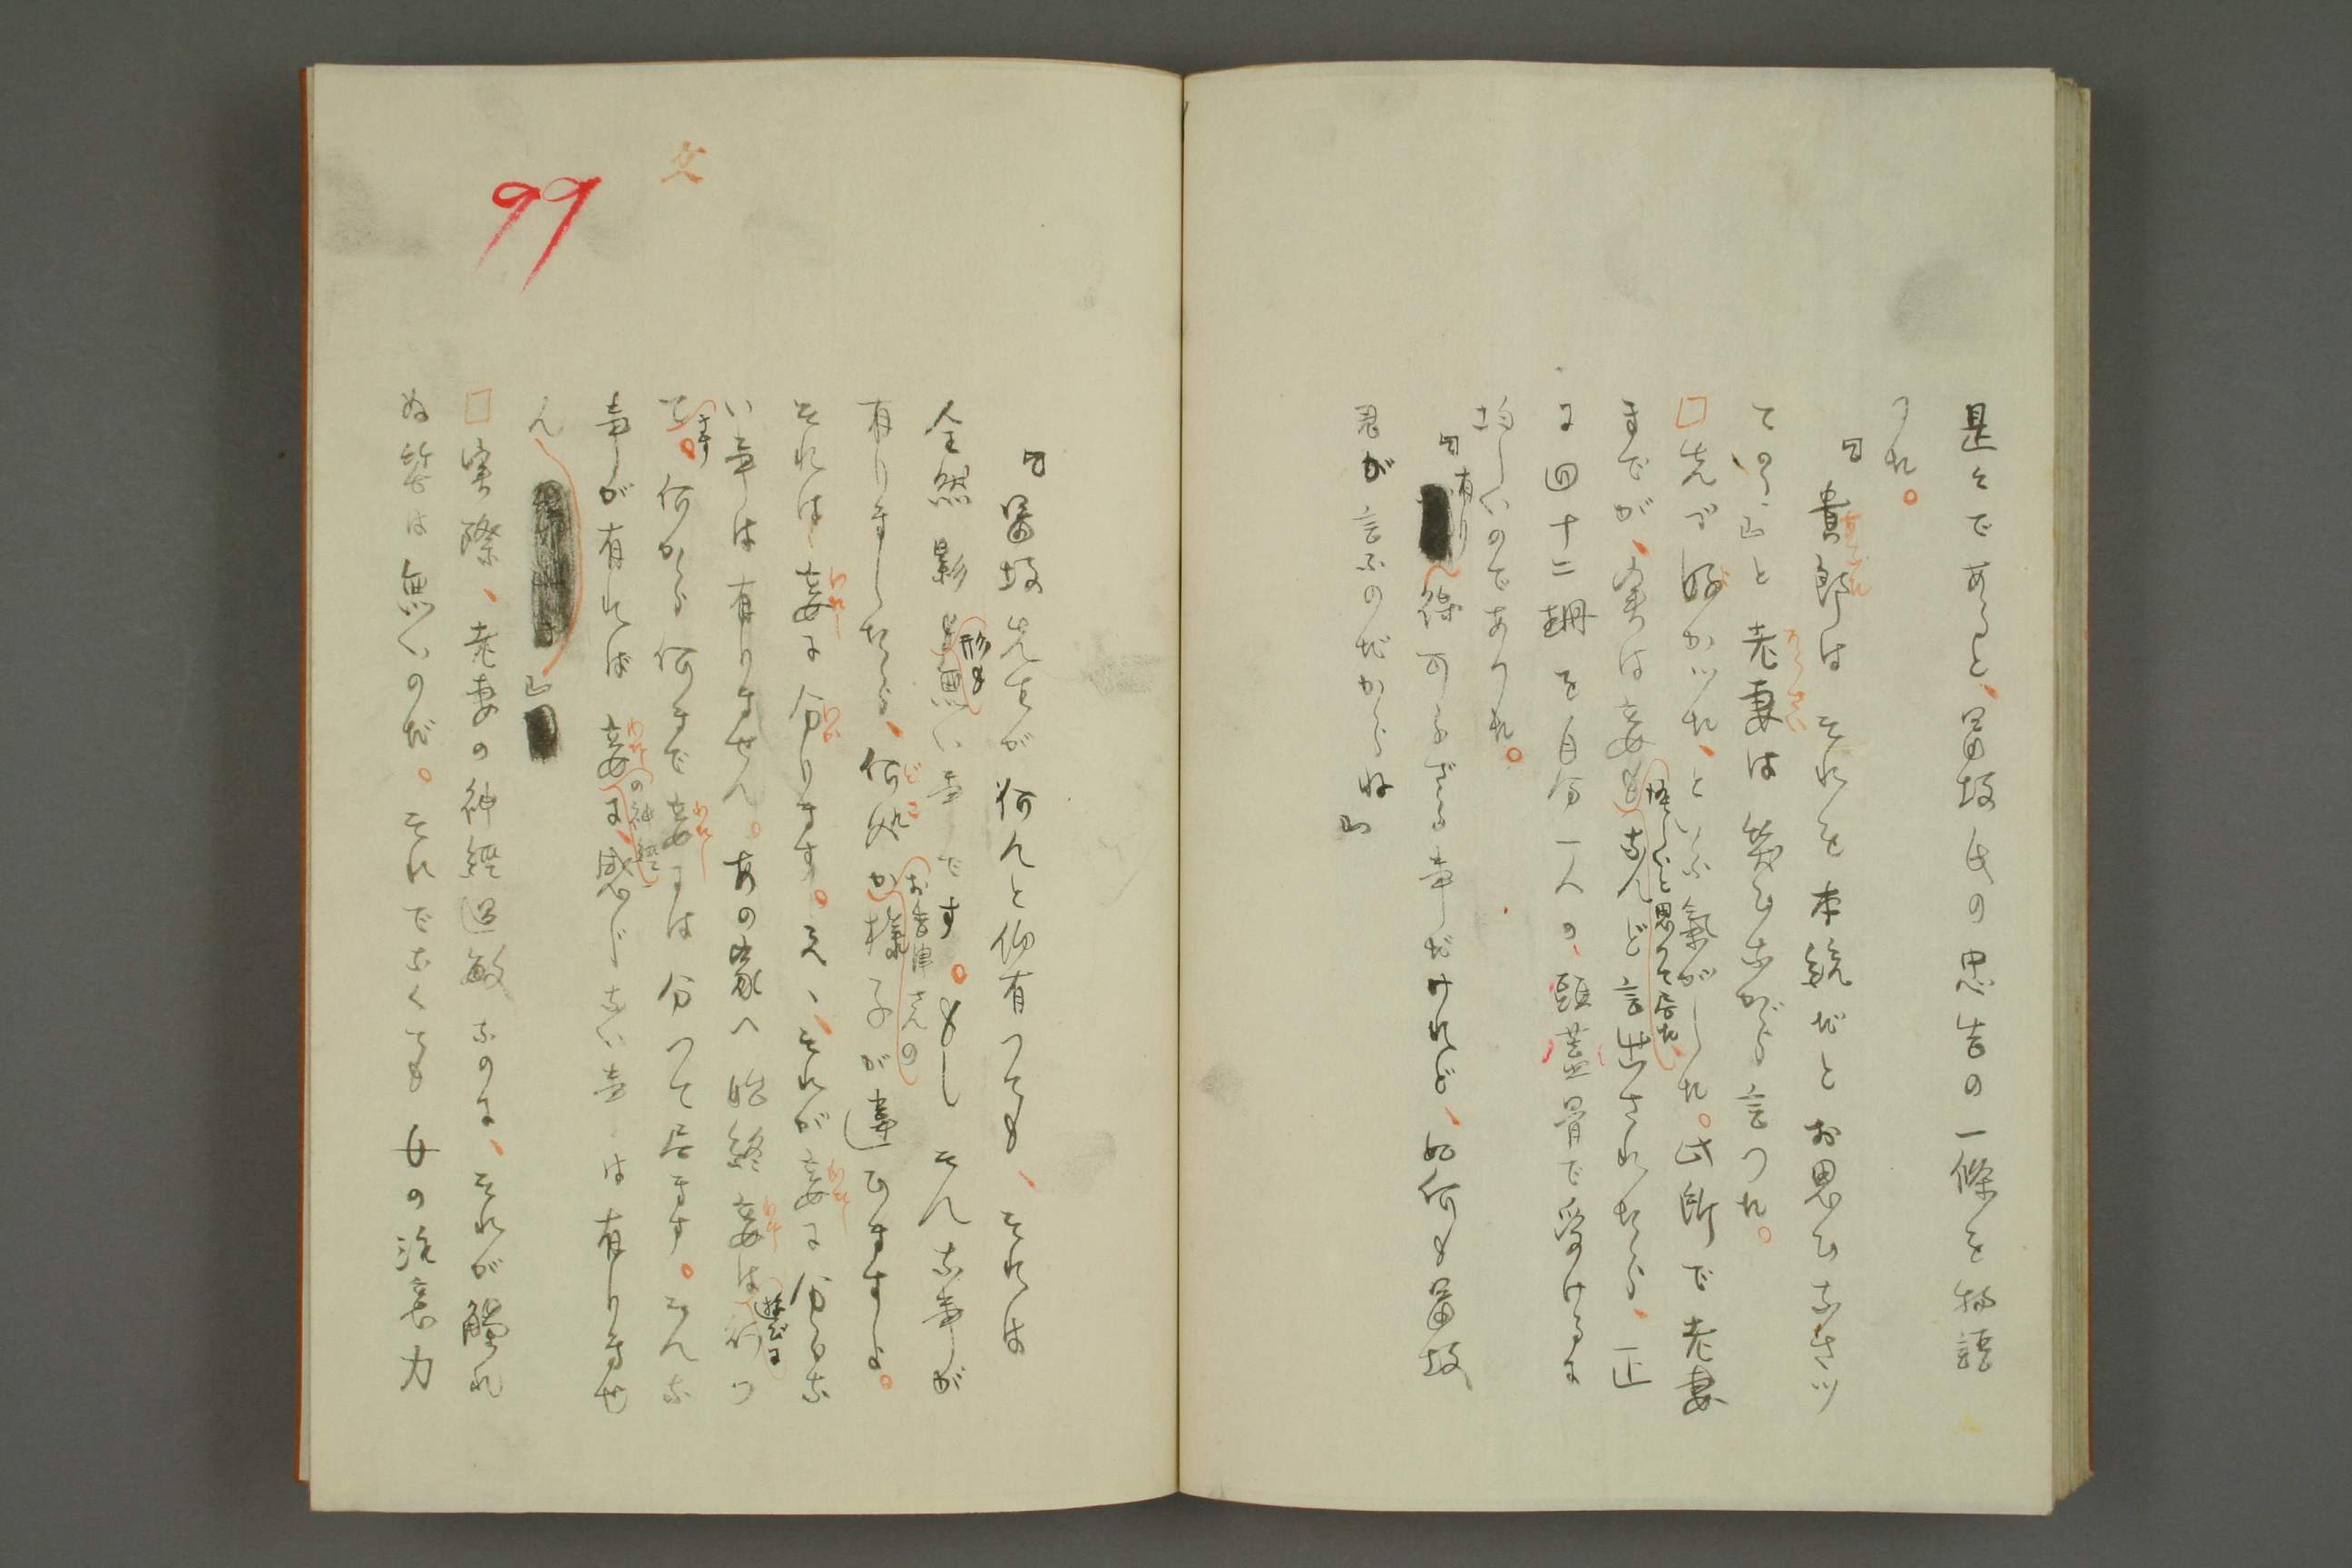 是々であると、冨坂氏の忠告の一條を物語
つた。
「貴郎はそれを本統だとお思ひなさツ
ているの」と老妻は笑ひながら言つた。
先づ好かツた、といふ氣がした。此所で老妻
までが、実は妾も怪しいと思つて居たなんど言出されたら、正
に四十二珊を自分一人の、頭蓋骨で受けるに
均しいのであつた。
「有り得可らざる事だけれど、如何も冨坂
君が言ふのだからね」
「冨坂先生が何んと仰有つても、それは
全然影も形も無い事です。もしそんな事が
有りましたら、何処かお香津さんの様子が違ひますよ。
それは妾に分ります。え、それが妾に分らな
い事は有りません。あの家へ始終妾は遊びに行つ
て。何から何まで妾には分つて居ます。そんな
事が有れば妾の神經に感じない事は有りませ
ん」
実際、老妻の神經過敏なのに、それが觸れ
ぬ筈は無いのだ。それでなくても女の注意力
文
99